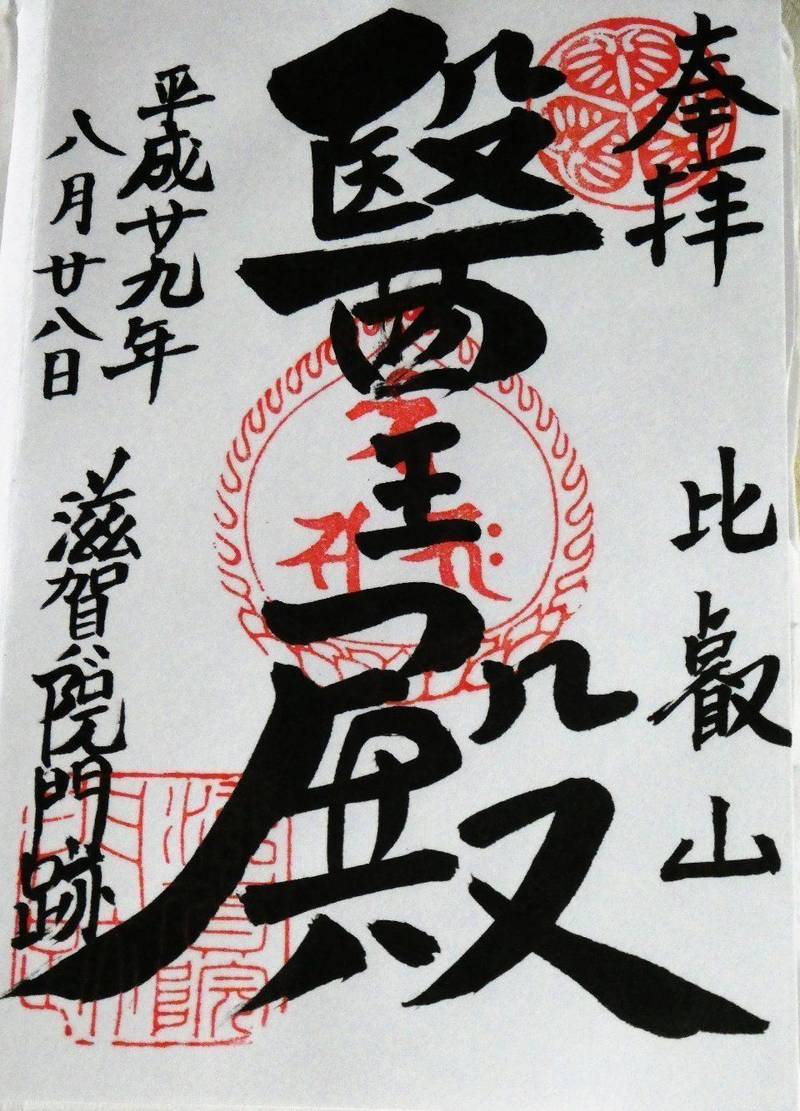 奉拝
比叡山
醫王殿
平成廿九年
八月廿八日
滋賀院門跡